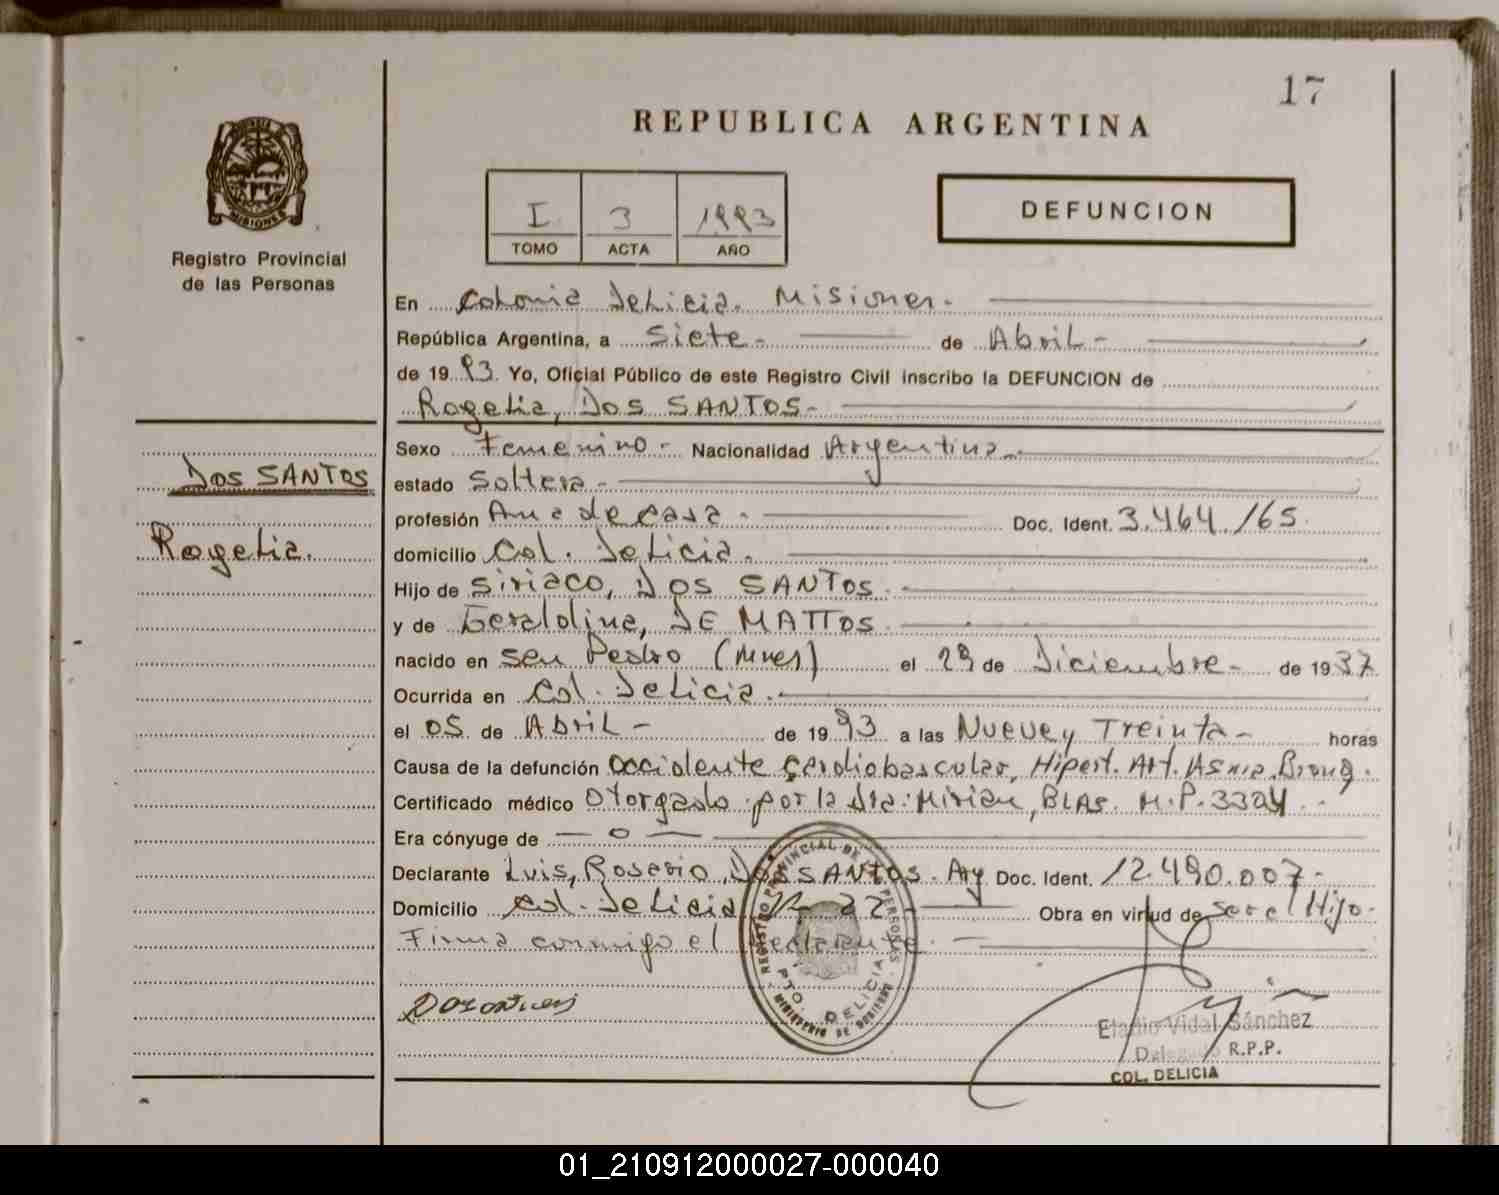 17
REPUBLICA ARGENTINA
MISIONES
Registro Provincial
de las Personas
I 3 1993
TOMO ACTA AÑO
DEFUNCION
En Colonia Delicia. Misiones.
República Argentina, a Siete- de Abril-
de 1993. Yo, Oficial Público de este Registro Civil inscribo la DEFUNCION de
Rogelia, DOS SANTOS-
DOS SANTOS
Rogelia.
Sexo Femenino- Nacionalidad Argentina
estado Soltera-
profesión Ama de casa. Doc. Ident. 3.464./65.
domicilio Col. Delicia.
Hijo de Siriaco, DOS SANTOS
y de Geraldina, DE MATTOS
nacido en San Pedro (Mnes) el 29 de Diciembre- de 1937
Ocurrida en Col. Delicia.
el 05 de Abril- de 1993 a las Nueve y Treinta- horas
Causa de la defunción Accidente Cardiobascular, Hipert. Art. Asma Bronq.
Certificado médico Otorgado por la Dra: Mirian, BLAS. M.P. 3324
Era cónyuge de —o—
Declarante Luis, Rosario, DOS SANTOS. Arg Doc. Ident. 12.490.007-
Domicilio Col. Delicia 22 Obra en virtud de ser el Hijo.
Firma conmigo el declarante.
REGISTRO PROVINCIAL DE LAS PERSONAS
PTO. DELICIA
MINISTERIO DE GOBIERNO
Eladio Vidal Sánchez
Delegado R.P.P.
COL. DELICIA
01_210912000027-000040